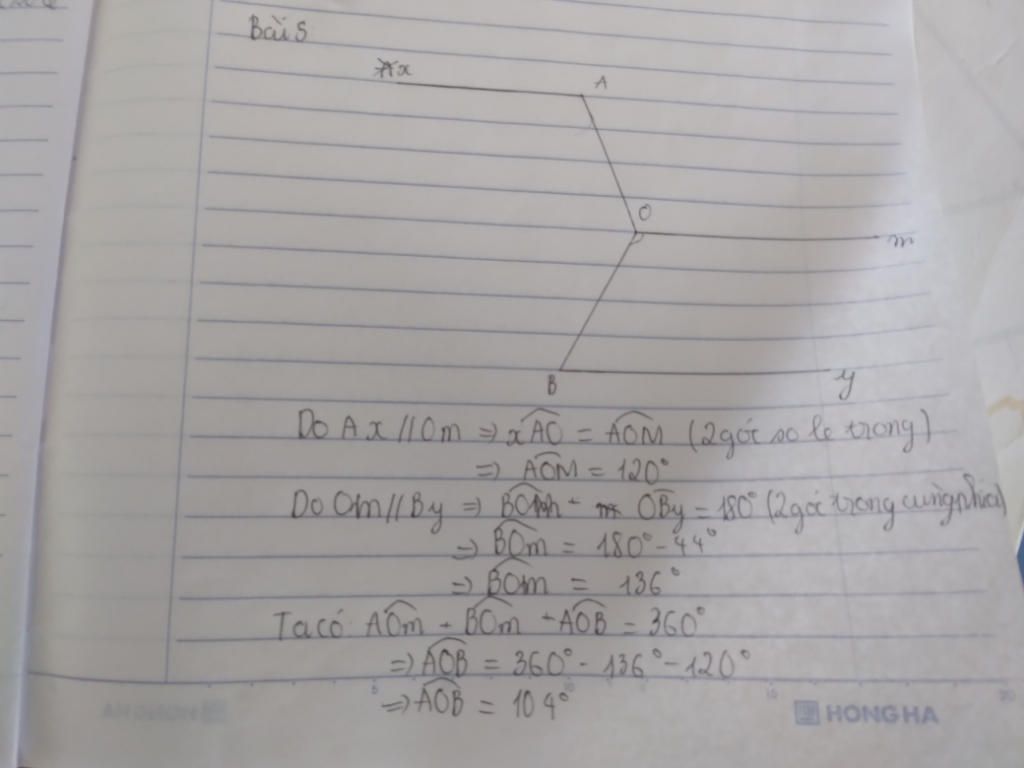 Bài 5
x A
O
m
B y
Do Ax // Om => xAO = AOM (2 góc so le trong)
=> AOM = 120°
Do Om // By => BOm + OBy = 180° (2 góc trong cùng phía)
=> BOm = 180° - 44°
=> BOm = 136°
Ta có AOm + BOm + AOB = 360°
=> AOB = 360° - 136° - 120°
=> AOB = 104°
5 10 15 20
HONG HA